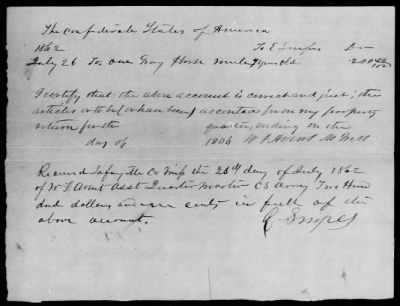 The Confederate States of America
1862 To E Snipes Dr
July 26 To one Gray Horse mule 7 years old 200 00/100
I certify that the above account is correct and just; the
articles to be (or have been) accounted from my property
return for the quarter, ending on the
day of 1864
Received Lafayette Co Miss the 26th day of July 1862
of W F Avent Asst Quarter Master CS Army Two Hun
dred dollars and cents in full of the
above account.
E Snipes